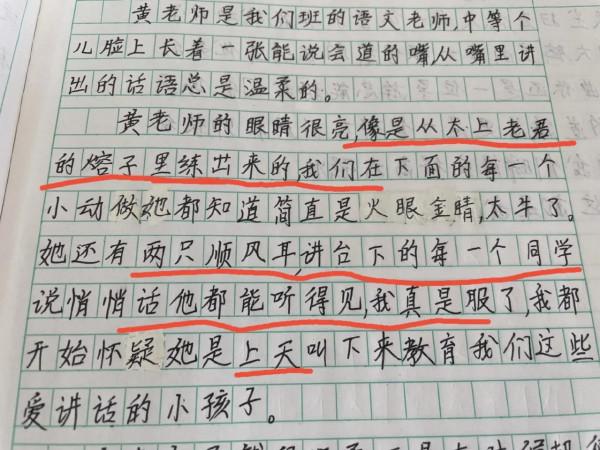 黄老师是我们班的语文老师,中等个
儿脸上长着一张能说会道的嘴,从嘴里讲
出的话语总是温柔的。
黄老师的眼睛很亮,像是从太上老君
的熔子里练出来的我们在下面的每一个
小动做她都知道简直是火眼金睛,太牛了。
她还有两只顺风耳,讲台下的每一个同学
说悄悄话他都能听得见,我真是服了,我都
开始怀疑她是上天叫下来教育我们这些
爱讲话的小孩子。